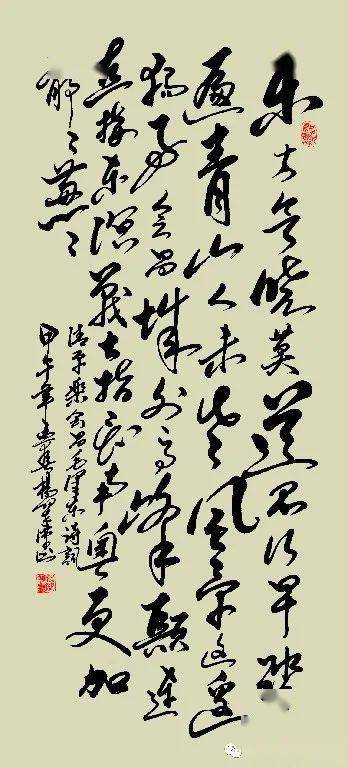 东方欲晓莫道君行早踏
遍青山人未老风景这边
独好会昌城外高峰颠连
直接东溟战士指看南粤更加
郁々葱々
清平樂会昌毛泽东詩詞
甲午年 杨